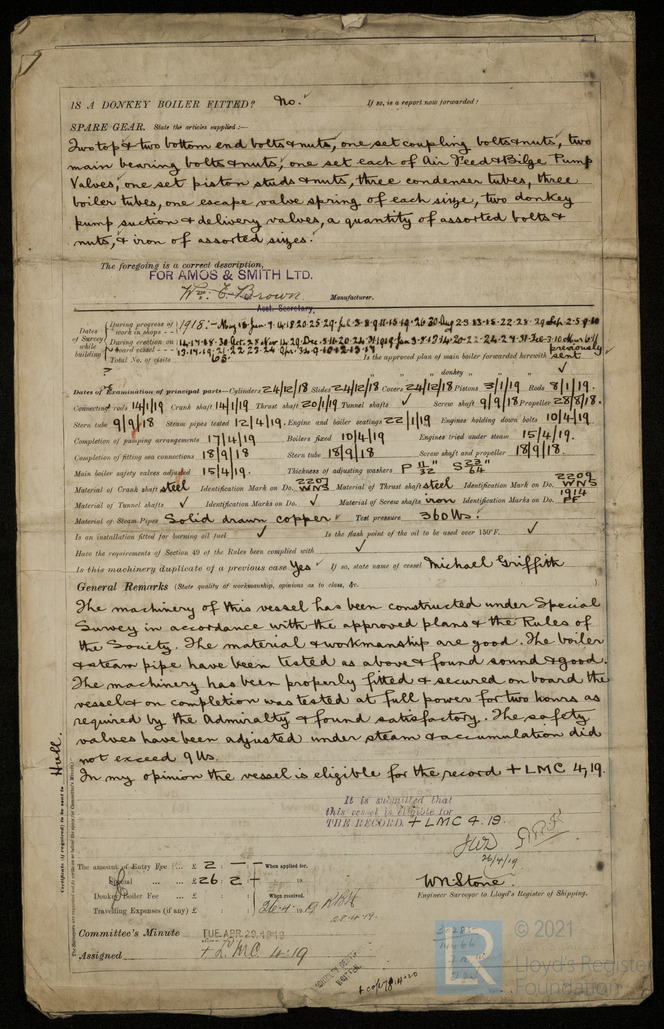 IS A DONKEY BOILER FITTED? No. If so, is a report now forwarded?
SPARE GEAR. State the articles supplied:—
Two top & two bottom end bolts & nuts, one set coupling bolts & nuts, two
main bearing bolts & nuts, one set each of Air Feed & Bilge Pump
Valves, one set piston studs & nuts, three condenser tubes, three
boiler tubes, one escape valve spring of each size, two donkey
pump suction & delivery valves, a quantity of assorted bolts &
nuts, & iron of assorted sizes.
The foregoing is a correct description,
FOR AMOS & SMITH LTD.
Wm. E. Brown Manufacturer.
Asst. Secretary.
Dates of Survey while building
During progress of work in shops - - 1918:-
During erection on board vessel - - -
Total No. of visits 65. Is the approved plan of main boiler forwarded herewith previously sent
" " donkey " " "
Dates of Examination of principal parts—Cylinders 24/12/18 Slides 24/12/18 Covers 24/12/18 Pistons 3/1/19 Rods 8/1/19.
Connecting rods 14/1/19 Crank shaft 14/1/19 Thrust shaft 20/1/19 Tunnel shafts ✓ Screw shaft 9/9/18 Propeller 28/8/18.
Stern tube 9/9/18 Steam pipes tested 12/4/19. Engine and boiler seatings 22/1/19 Engines holding down bolts 10/4/19
Completion of pumping arrangements 17/4/19 Boilers fixed 10/4/19 Engines tried under steam 15/4/19.
Completion of fitting sea connections 18/9/18 Stern tube 18/9/18 Screw shaft and propeller 18/9/18.
Main boiler safety valves adjusted 15/4/19. Thickness of adjusting washers P 11/32" S 23/64"
Material of Crank shaft steel Identification Mark on Do. 2207 WNS Material of Thrust shaft steel Identification Mark on Do. 2209 WNS
Material of Tunnel shafts ✓ Identification Marks on Do. ✓ Material of Screw shafts iron Identification Marks on Do. 1914 PF
Material of Steam Pipes Solid drawn copper ✓ Test pressure 360 lbs.
Is an installation fitted for burning oil fuel ✓ Is the flash point of the oil to be used over 150°F. ✓
Have the requirements of Section 49 of the Rules been complied with ✓
Is this machinery duplicate of a previous case Yes ✓ If so, state name of vessel Michael Griffith
General Remarks (State quality of workmanship, opinions as to class, &c.
The machinery of this vessel has been constructed under Special
Survey in accordance with the approved plans & the Rules of
the Society. The material & workmanship are good. The boiler
& steam pipe have been tested as above & found sound & good.
The machinery has been properly fitted & secured on board the
vessel & on completion was tested at full power for two hours as
required by the Admiralty & found satisfactory. The safety
valves have been adjusted under steam & accumulation did
not exceed 9 lbs.
In my opinion the vessel is eligible for the record + LMC 4,19.
It is submitted that
this vessel is eligible for
THE RECORD. + LMC 4.19.
26/4/19
Certificate (if required) to be sent to Hull.
The amount of Entry Fee ... £ 2 : — : When applied for,
Special ... ... £ 26 : 2 :
Donkey Boiler Fee ... ... £ When received,
Travelling Expenses (if any) £ 26.4.19
28.4.19.
W.N. Stone.
Engineer Surveyor to Lloyd's Register of Shipping.
Committee's Minute TUE. APR. 29. 1919
Assigned + L.M.C. 4.19
© 2021
Lloyd's Register
Foundation